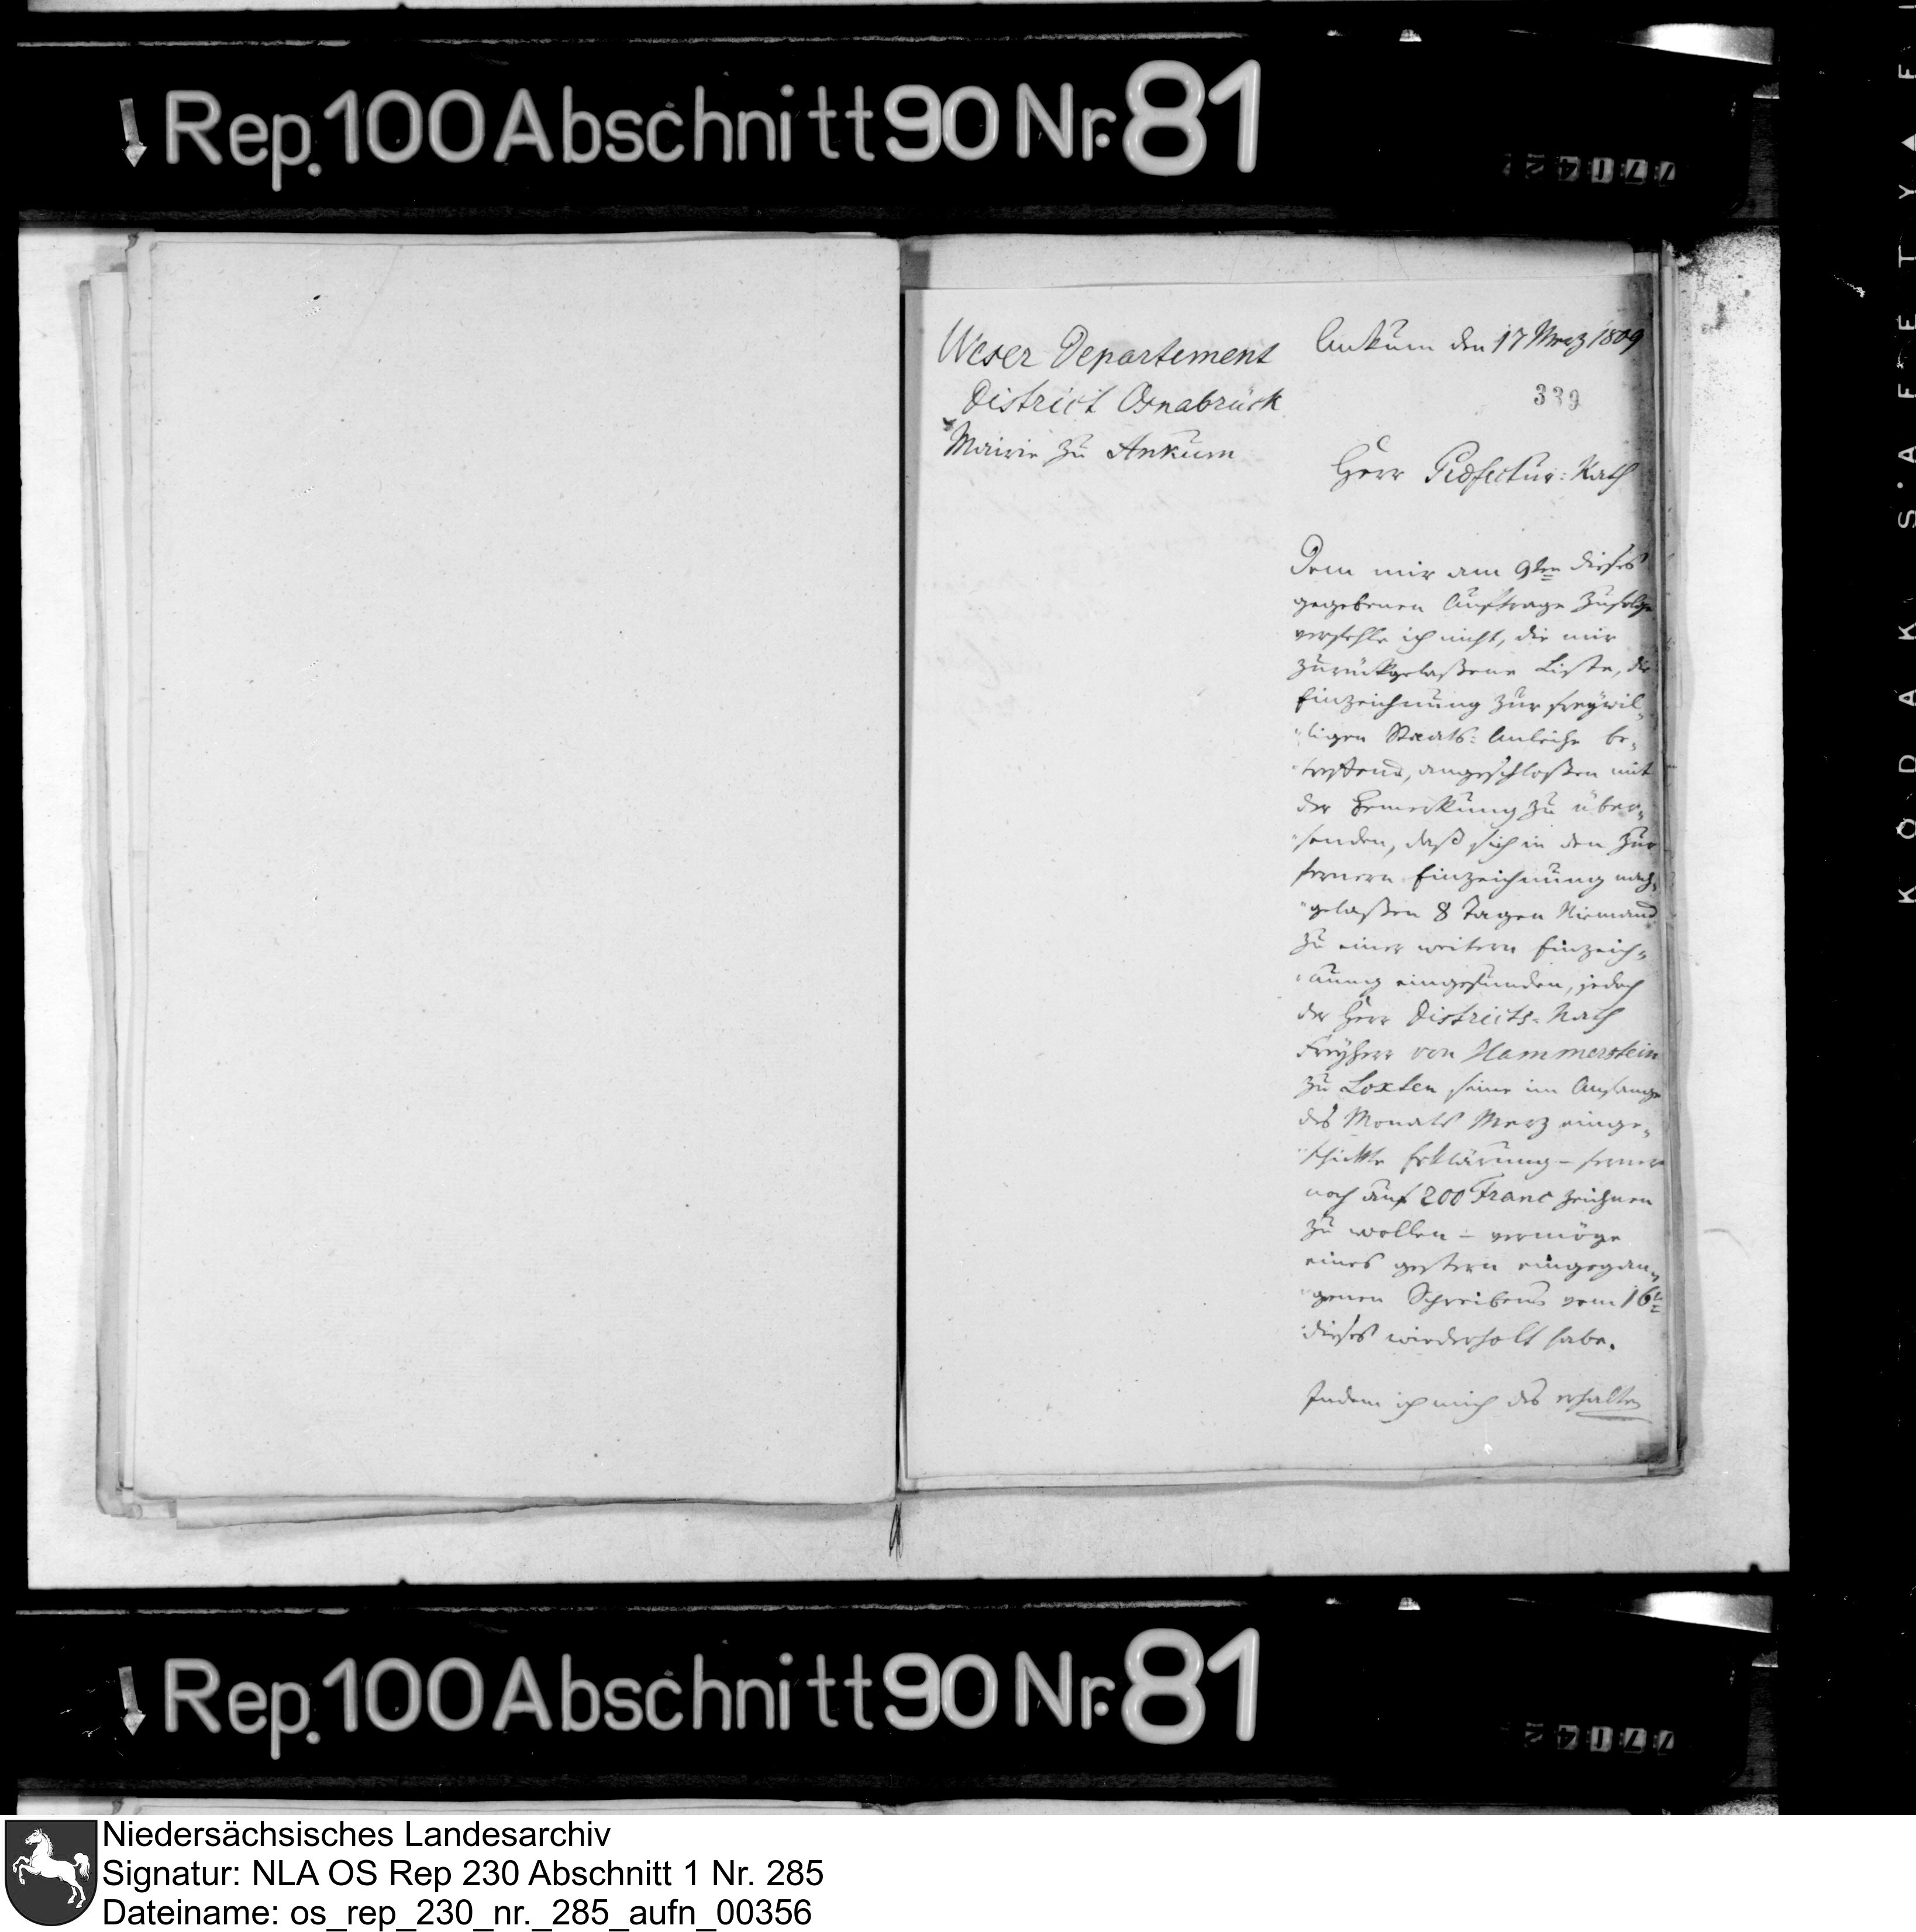 Rep. 100 Abschnitt 90 Nr. 81
Weser Departement
District Osnabrück
Mairie zu Ankum
Ankum den 17 Merz 1809
339
Herr Präfectur-Rath
Dem mir am 9ten dieses
gegebenen Auftrage zufolge
verfehle ich nicht, die mir
zurückgelaßene Liste, die
Einzeichnung zur freywil-
ligen Staats-Anleihe be-
treffend, angeschloßen mit
der Bemerkung zu über-
senden, daß sich in den zur
fernern Einzeichnung nach-
gelaßen 8 Tagen Niemand
zu einer weitern Einzeich-
nung eingefunden, jedoch
der Herr Districts-Rath
Freyherr von Hammerstein
zu Loxten seine im Anfange
des Monats Merz einge-
schickte Erklärung – ferner
noch auf 200 Franc zeichnen
zu wollen – vermöge
eines gestern eingegan-
genen Schreibens vom 16ten
dieses wiederholt habe.
Indem ich mich des erhalten
Rep. 100 Abschnitt 90 Nr. 81
KODAK SAFETY
Niedersächsisches Landesarchiv
Signatur: NLA OS Rep 230 Abschnitt 1 Nr. 285
Dateiname: os_rep_230_nr._285_aufn_00356